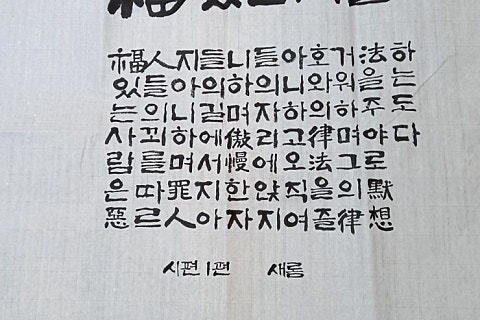 福있는사람은惡
人들의꾀를따르
지아니하며罪人
들의길에서지아
니하며傲慢한자
들의자리에앉지
아니하고오직여
호와의律法을즐
거워하며그의律
法을주야로默想
하는도다
시편 1편 새름